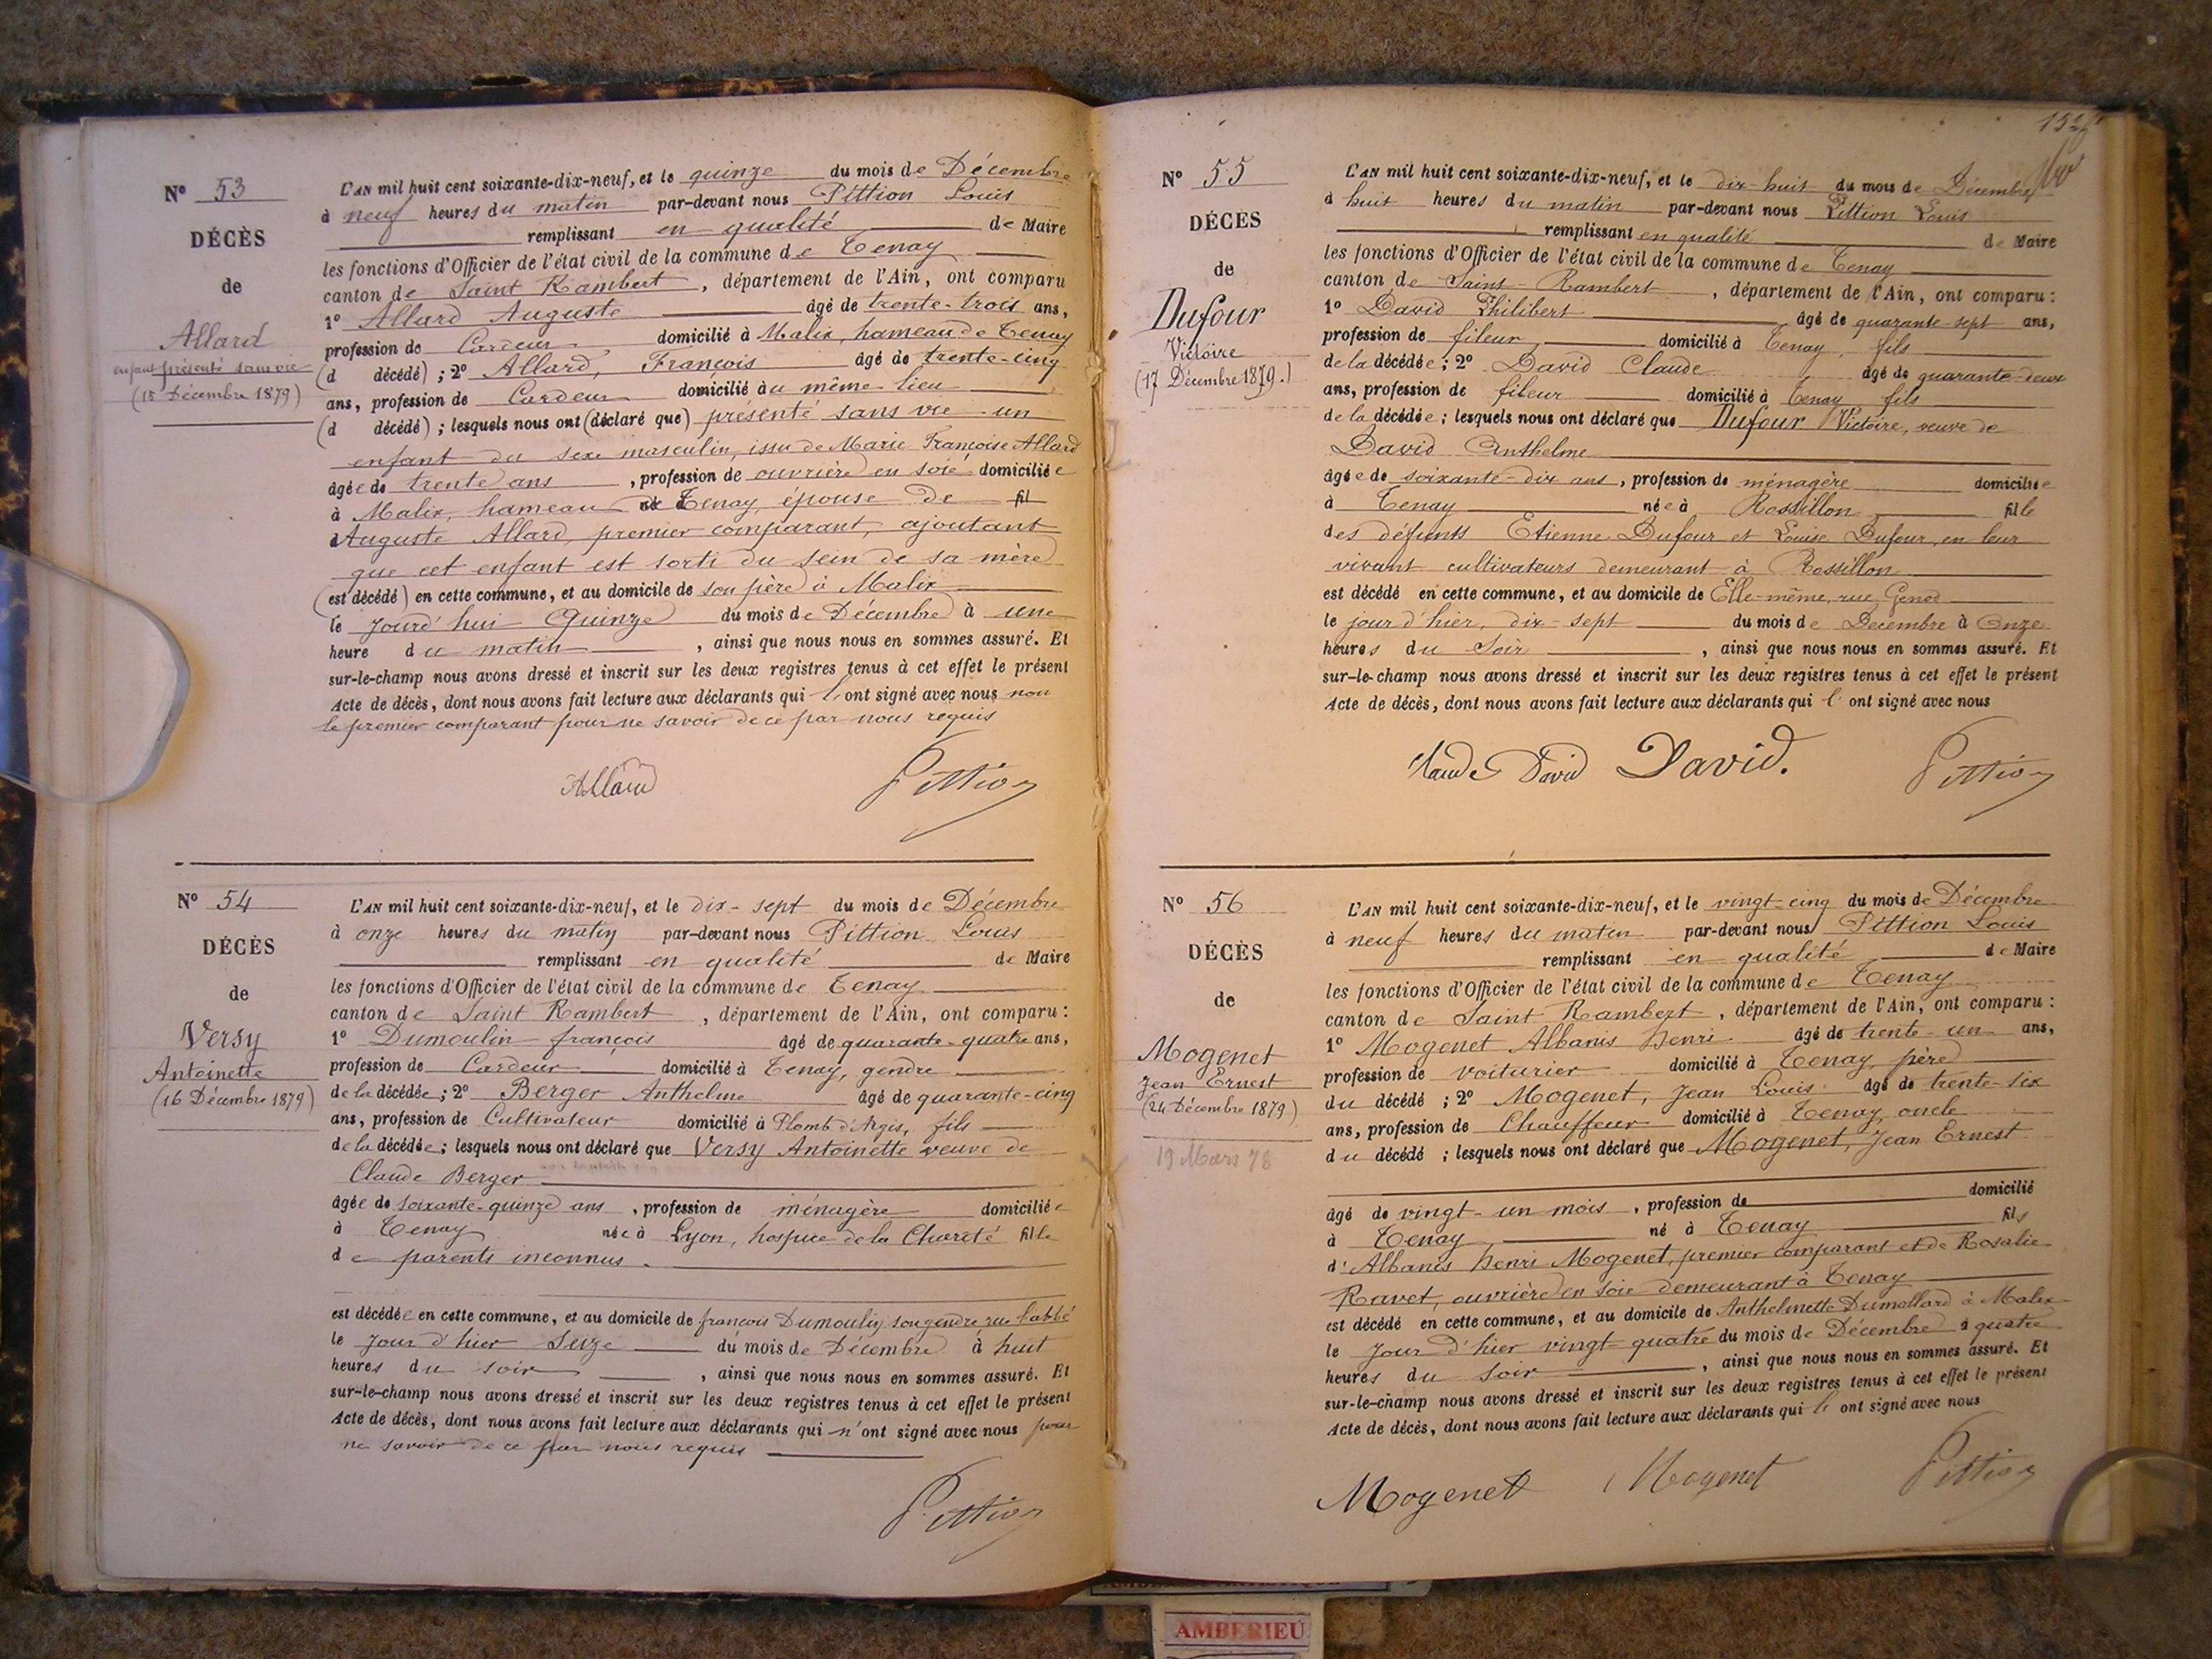 Nº 53
DÉCÈS
de
Allard
enfant présenté sans vie
(15 Décembre 1879)
L'AN mil huit cent soixante-dix-neuf, et le quinze du mois de Décembre
à neuf heures du matin par-devant nous Pittion Louis
remplissant en qualité de Maire
les fonctions d'Officier de l'état civil de la commune de Tenay
canton de Saint Rambert, département de l'Ain, ont comparu
1º Allard Auguste âgé de trente-trois ans,
profession de Cardeur domicilié à Malix, hameau de Tenay
(d décédé) ; 2º Allard, François âgé de trente-cinq
ans, profession de Cardeur domicilié au même lieu
(d décédé) ; lesquels nous ont (déclaré que) présenté sans vie un
enfant du sexe masculin, issu de Marie Françoise Allard
âgée de trente ans, profession de ouvrière en soie domiciliée
à Malix, hameau de Tenay, épouse de fil
Auguste Allard, premier comparant, ajoutant
que cet enfant est sorti du sein de sa mère
(est décédé) en cette commune, et au domicile de son père à Malix
le jourd'hui Quinze du mois de Décembre à une
heure du matin, ainsi que nous nous en sommes assuré. Et
sur-le-champ nous avons dressé et inscrit sur les deux registres tenus à cet effet le présent
Acte de décès, dont nous avons fait lecture aux déclarants qui l'ont signé avec nous non
le premier comparant pour ne savoir de ce par nous requis
Allard Pittion
Nº 54
DÉCÈS
de
Versy
Antoinette
(16 Décembre 1879)
L'AN mil huit cent soixante-dix-neuf, et le dix-sept du mois de Décembre
à onze heures du matin par-devant nous Pittion Louis
remplissant en qualité de Maire
les fonctions d'Officier de l'état civil de la commune de Tenay
canton de Saint Rambert, département de l'Ain, ont comparu :
1º Dumoulin françois âgé de quarante-quatre ans,
profession de Cardeur domicilié à Tenay, gendre
de la décédée ; 2º Berger Anthelme âgé de quarante-cinq
ans, profession de Cultivateur domicilié à Plomb d'Argis, fils
de la décédée ; lesquels nous ont déclaré que Versy Antoinette veuve de
Claude Berger
âgée de soixante-quinze ans, profession de ménagère domiciliée
à Tenay née à Lyon, hospice de la Charité fille
de parents inconnus.
est décédée en cette commune, et au domicile de françois Dumoulin son gendre rue l'abbé
le jour d'hier Seize du mois de Décembre à huit
heures du soir, ainsi que nous nous en sommes assuré. Et
sur-le-champ nous avons dressé et inscrit sur les deux registres tenus à cet effet le présent
Acte de décès, dont nous avons fait lecture aux déclarants qui n'ont signé avec nous pour
ne savoir de ce par nous requis
Pittion
Nº 55
DÉCÈS
de
Dufour
Victoire
(17 Décembre 1879.)
L'AN mil huit cent soixante-dix-neuf, et le dix-huit du mois de Décembre
à huit heures du matin par-devant nous Pittion Louis
remplissant en qualité de Maire
les fonctions d'Officier de l'état civil de la commune de Tenay
canton de Saint-Rambert, département de l'Ain, ont comparu :
1º David Philibert âgé de quarante-sept ans,
profession de fileur domicilié à Tenay, fils
de la décédée ; 2º David Claude âgé de quarante-deux
ans, profession de fileur domicilié à Tenay fils
de la décédée ; lesquels nous ont déclaré que Dufour Victoire, veuve de
David Anthelme
âgée de soixante-dix ans, profession de ménagère domiciliée
à Tenay née à Rossillon fille
des défunts Etienne Dufour et Louise Dufour, en leur
vivant cultivateurs demeurant à Rossillon
est décédé en cette commune, et au domicile de Elle-même, rue Genod
le jour d'hier, dix-sept du mois de Décembre à Onze
heures du Soir, ainsi que nous nous en sommes assuré. Et
sur-le-champ nous avons dressé et inscrit sur les deux registres tenus à cet effet le présent
Acte de décès, dont nous avons fait lecture aux déclarants qui l'ont signé avec nous
Claude David David. Pittion
Nº 56
DÉCÈS
de
Mogenet
Jean Ernest
(24 Décembre 1879)
19 Mars 78
L'AN mil huit cent soixante-dix-neuf, et le vingt-cinq du mois de Décembre
à neuf heures du matin par-devant nous Pittion Louis
remplissant en qualité de Maire
les fonctions d'Officier de l'état civil de la commune de Tenay
canton de Saint Rambert, département de l'Ain, ont comparu :
1º Mogenet Albanis Henri âgé de trente-un ans,
profession de voiturier domicilié à Tenay, père
du décédé ; 2º Mogenet, Jean Louis âgé de trente-six
ans, profession de Chauffeur domicilié à Tenay, oncle
du décédé ; lesquels nous ont déclaré que Mogenet, Jean Ernest
âgé de vingt-un mois, profession de domicilié
à Tenay, né à Tenay fils
d'Albanis Henri Mogenet, premier comparant et de Rosalie
Ravet, ouvrière en soie demeurant à Tenay
est décédé en cette commune, et au domicile de Anthelmette Dumollard à Malix
le jour d'hier vingt-quatre du mois de Décembre à quatre
heures du soir, ainsi que nous nous en sommes assuré. Et
sur-le-champ nous avons dressé et inscrit sur les deux registres tenus à cet effet le présent
Acte de décès, dont nous avons fait lecture aux déclarants qui l'ont signé avec nous
Mogenet Mogenet Pittion
AMBERIEU